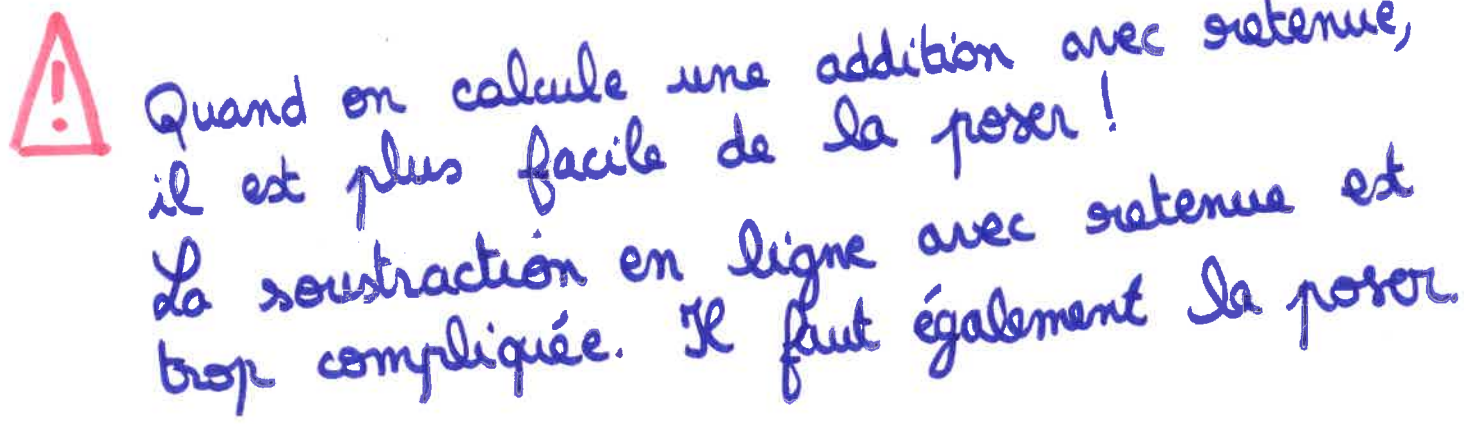 Quand on calcule une addition avec retenue,
il est plus facile de la poser !
La soustraction en ligne avec retenue est
trop compliquée. Il faut également la poser.